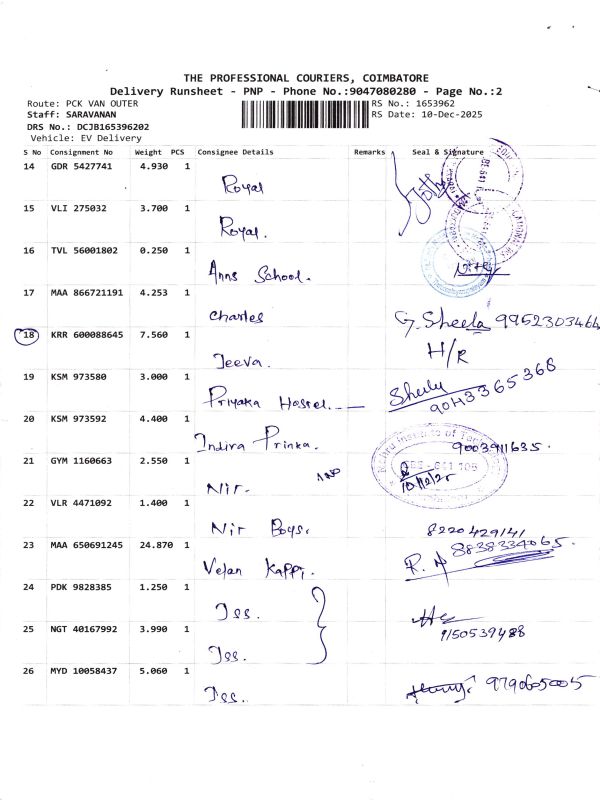 THE PROFESSIONAL COURIERS, COIMBATORE
Delivery Runsheet - PNP - Phone No.:9047080280 - Page No.:2
Route: PCK VAN OUTER
RS No.: 1653962
Staff: SARAVANAN
RS Date: 10-Dec-2025
DRS No.: DCJB165396202
Vehicle: EV Delivery
S No Consignment No Weight PCS Consignee Details Remarks Seal & Signature
14 GDR 5427741 4.930 1
Royal
15 VLI 275032 3.700 1
Royal.
16 TVL 56001802 0.250 1
Anns School.
17 MAA 866721191 4.253 1
Charles G. Sheela 9952303464
18 KRR 600088645 7.560 1 H/R
Jeeva.
19 KSM 973580 3.000 1
Hostel. Sheely 9043365368
20 KSM 973592 4.400 1
Indira Prinka. 9003911635.
21 GYM 1160663 2.550 1
Nir. 10/12/25
22 VLR 4471092 1.400 1
Nir Boys. 8220429141
23 MAA 650691245 24.870 1 8838334065.
Velan Kappi.
24 PDK 9828385 1.250 1
Jss.
25 NGT 40167992 3.990 1 9150539488
Jss.
26 MYD 10058437 5.060 1
Jss. 9790605005